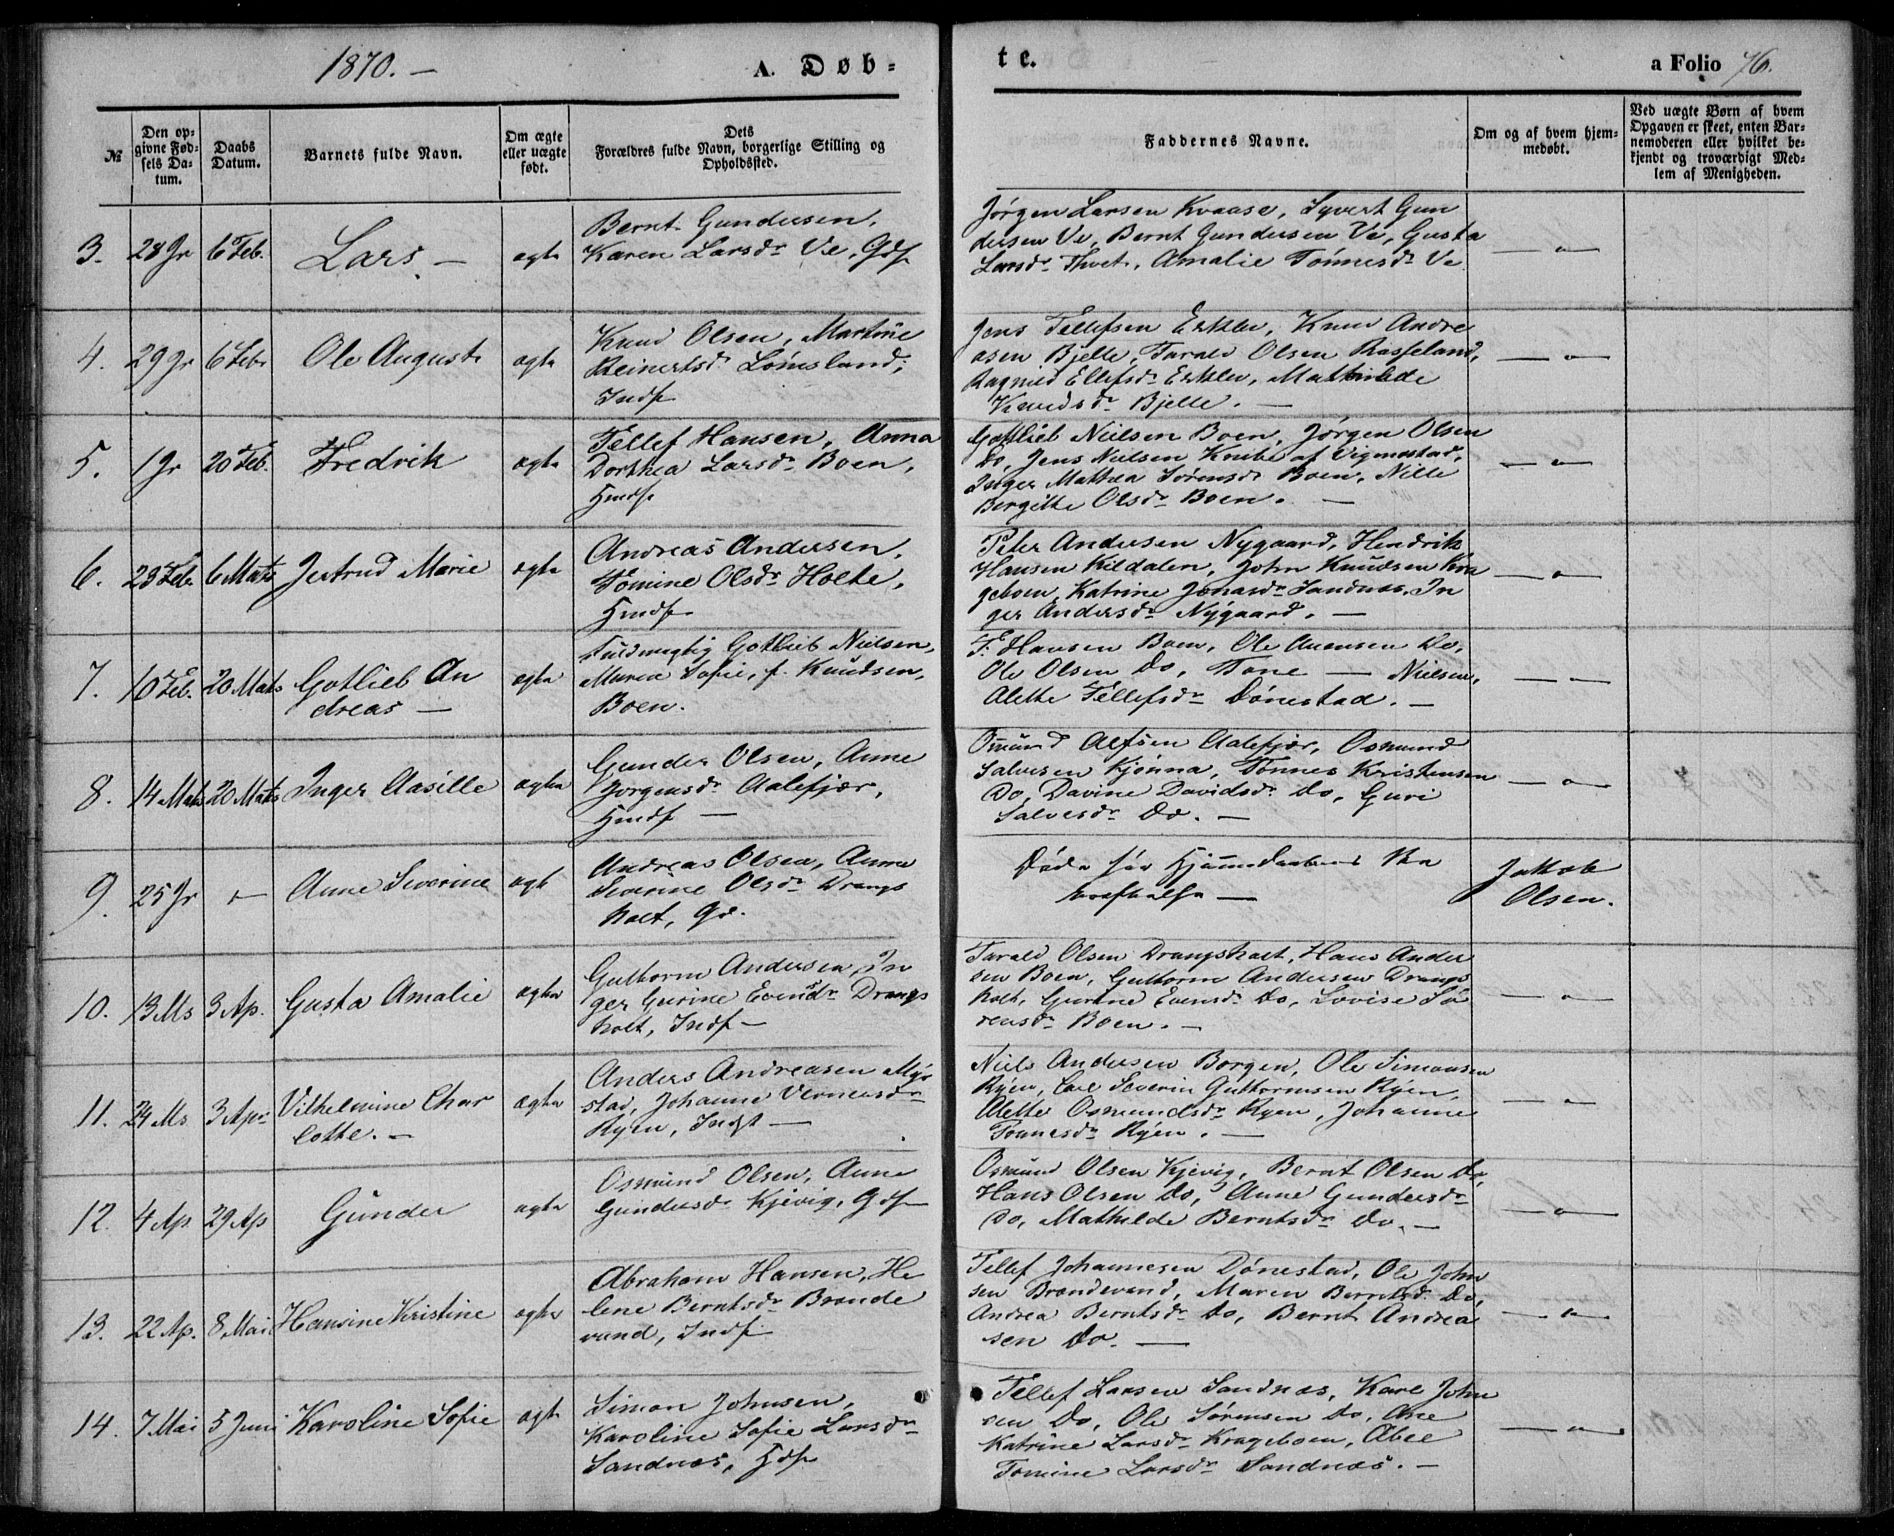 1870. —
A. Døb-
te.
a Folio 76.
№
Den opgivne Fødsels Datum.
Daabs Datum.
Barnets fulde Navn.
Om ægte eller uægte født.
Dets Forældres fulde Navn, borgerlige Stilling og Opholdssted.
Faddernes Navne.
Om og af hvem hjemmedøbt.
Ved uægte Børn af hvem Opgaven er skeet, enten Barnemoderen eller hvilket bekjendt og troværdigt Medlem af Menigheden.
3. 28 Jr 6 Feb. Lars. — ægte
Bernt Gundersen,
Karen Larsdr Ve, Gdf
Jørgen Larsen Kvaase, Syvert Gun
dersen Ve, Bernt Gundersen Ve, Gusta
Larsdr Thvet, Amalie Tønnesdr Ve
4. 29 Jr 6 Febr Ole August ægte
Knud Olsen, Martine
Reinertsdr Lømsland,
Indf
Jens Tellefsen Erklev, Knud Andre
asen Bjelle, Tarald Olsen Rasseland,
Ragnild Ellefsdr Erklev, Mathilde
Knudsdr Bjelle. —
5. 1 Jr 20 Feb. Fredrik ægte
Tellef Hansen, Anna
Dorthea Larsdr Boen,
Hmdf
Gottlieb Nielsen Boen, Jørgen Olsen
Do, Jens Nielsen Knibe af Vigmostad,
Inger Mathea Sørensdr Boen, Nille
Bergitte Olsdr Boen. —
6. 23 Feb 6 Mats Jertrud Marie ægte
Andreas Andersen,
Tomine Olsdr Holte,
Hmdf
Peter Andersen Nygaard, Hendrik
Hansen Kildalen, John Knudsen Kra
geboen, Katrine Jonasdr Sandnæs, In
ger Andersdr Nygaard. —
7. 10 Feb. 20 Mats Gotlieb An
dreas — ægte
Fuldmægtig Gotlieb Nielsen,
Maren Sofie, f. Knudsen,
Boen.
T. Hansen Boen, Ole Aanensen Do,
Ole Olsen Do, Tone — Nielsen,
Alette Tellefsdr Dønestad. —
8. 14 Mats 20 Mats Inger Aasille ægte
Gunder Olsen, Anne
Jørgensdr Aalefjær,
Hmdf —
Omund Alfsen Aalefjær, Osmund
Salvesen Kjønna, Tønnes Kristensen
Do, Davine Davidsdr Do, Guri
Salvesdr Do. —
9. 25 Jr — Anne Severine ægt
Andreas Olsen, Anna
Severine Olsdr Drangs
holt, Gd.
Døde før Hjemmedaabens Be
kræftelse —
Jakob
Olsen.
10. 13 Ms 3 Ap. Gusta Amalie ægte
Guttorm Andersen, In
ger Gurine Evensdr Drangs
holt, Indf —
Tarald Olsen Drangsholt, Hans Ander
sen Boen, Guttorm Andersen Drangs
holt, Gurine Evensdr Do, Lovise Sø
rensdr Boen. —
11. 24 Ms 3 Apr Vilhelmine Char
lotte. — ægte
Anders Andreasen Myr
stad, Johanne Vernersdr
Ryen, Indst —
Niels Andersen Borgen, Ole Simonsen
Ryen, Carl Severin Guttormsen Ryen,
Alette Osmundsdr Ryen, Johanne
Tønnesdr Ryen. —
12. 4 Ap 29 Ap Gunder ægte
Osmund Olsen, Anne
Gundersdr Kjevig, Gdf
Osmund Olsen Kjevig, Bernt Olsen Do,
Hans Olsen Do, Anne Gundersdr
Do, Mathilde Berntsdr Do. —
13. 22 Ap. 8 Mai Hansine Kristine ægte
Abraham Hansen, He
lene Berntsdr Brande
vand, Indf
Tellef Johannesen Dønestad, Ole John
sen Brandevand, Maren Berntsdr Do,
Andrea Berntsdr Do, Bernt Andrea
sen Do. —
14. 7 Mai 5 Juni Karoline Sofie ægte
Simon Johnsen,
Karoline Sofie Larsdr
Sandnæs, Hdf
Tellef Larsen Sandnæs, Karl John
sen Do, Ole Sørensen Do, Ane
Katrine Larsdr Krageboen, Abel
Tomine Larsdr Sandnæs. —